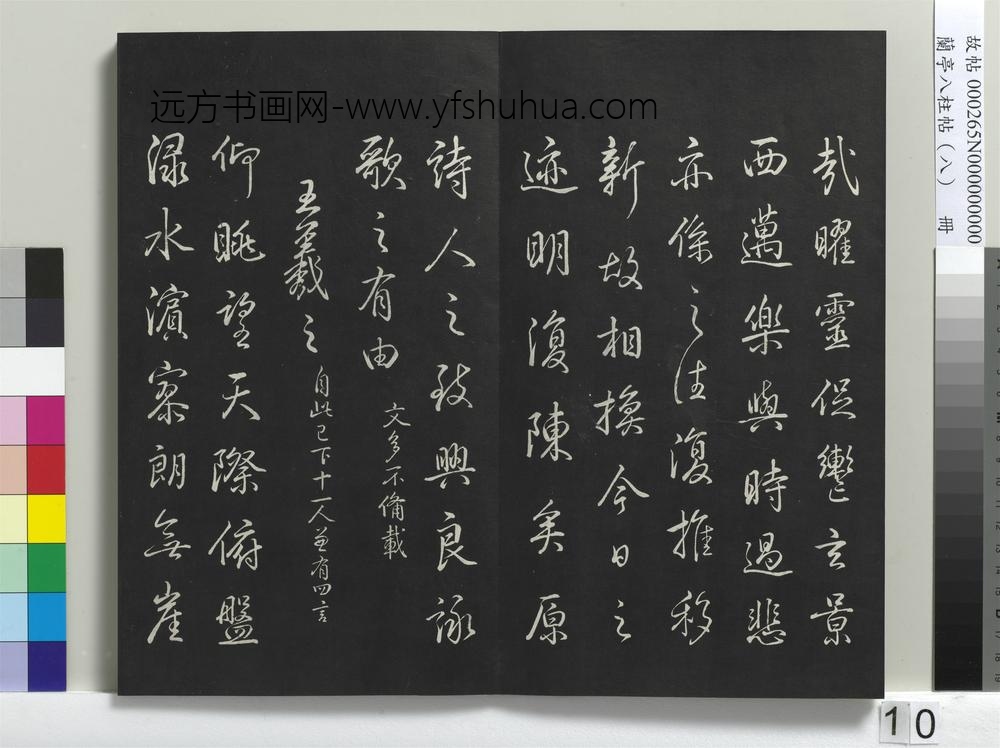 哉曜靈促轡玄景
西邁樂與時過悲
亦係之往復推移
新故相換今日之
迹明復陳矣原
詩人之致興良詠
歌之有由
文多不備載
王羲之
自此已下十一人並有四言
仰眺望天際俯盤
淥水濱寥朗無崖
远方书画网-www.yfshuhua.com
故帖 000265N000000000
蘭亭八柱帖(八) 冊
10